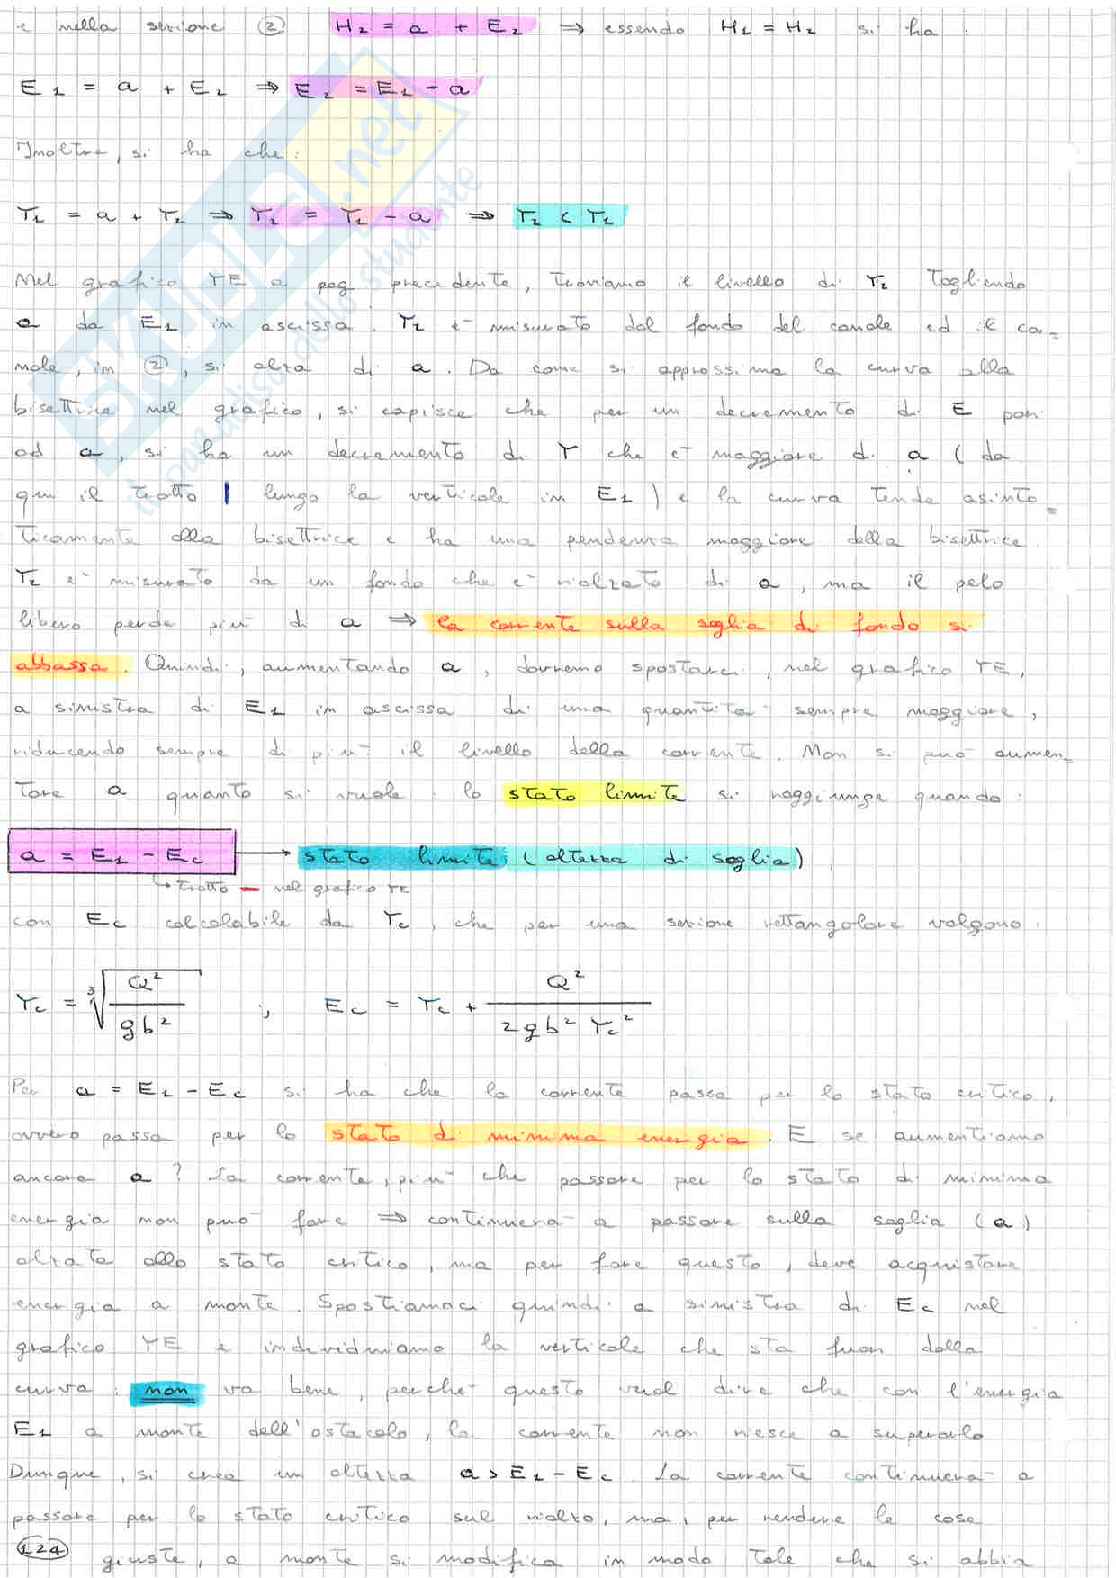 e nella sezione ② H₂ = a + E₂ ⇒ essendo H₁ = H₂ si ha :
E₁ = a + E₂ ⇒ E₂ = E₁ - a
Inoltre, si ha che :
Y₁ = a + Y₂ ⇒ Y₂ = Y₁ - a ⇒ Y₂ < Y₁
Nel grafico YE a pag precedente, troviamo il livello di Y₂ togliendo
a da E₁ in ascissa. Y₂ è misurato dal fondo del canale ed il ca=
nale, in ②, si alza di a. Da come si approssima la curva alla
bisettrice nel grafico, si capisce che per un decremento di E pari
ad a, si ha un decremento di Y che è maggiore di a (da
qui il tratto | lungo la verticale in E₁) e la curva tende asinto=
ticamente alla bisettrice e ha una pendenza maggiore della bisettrice.
Y₂ è misurato da un fondo che è rialzato di a, ma il pelo
libero perde più di a ⇒ la corrente sulla soglia di fondo si
abbassa. Quindi, aumentando a, dovremo spostarci, nel grafico YE,
a sinistra di E₁ in ascissa di una quantità sempre maggiore,
riducendo sempre di più il livello della corrente. Non si può aumen=
tare a quanto si vuole : lo stato limite si raggiunge quando :
a = E₁ - Ec → stato limite (altezza di soglia)
↳ tratto — nel grafico YE
con Ec calcolabile da Yc, che per una sezione rettangolare valgono :
Yc = ∛(Q²/gb²) ; Ec = Yc + Q²/(2gb² Yc²)
Per a = E₁ - Ec si ha che la corrente passa per lo stato critico,
ovvero passa per lo stato di minima energia. E se aumentiamo
ancora a ? La corrente, più che passare per lo stato di minima
energia non può fare ⇒ continuerà a passare sulla soglia (a)
alzata allo stato critico, ma per fare questo, deve acquistare
energia a monte. Spostiamoci quindi a sinistra di Ec nel
grafico YE e individuiamo la verticale che sta fuori dalla
curva : non va bene, perché questo vuol dire che con l'energia
E₁ a monte dell'ostacolo, la corrente non riesce a superarlo
Dunque, si crea un altezza a > E₁ - Ec. La corrente continuerà a
passare per lo stato critico sul rialzo, ma, per rendere le cose
giuste, a monte si modifica in modo tale che si abbia
124
SKUOLA.net
il paradiso dello studente